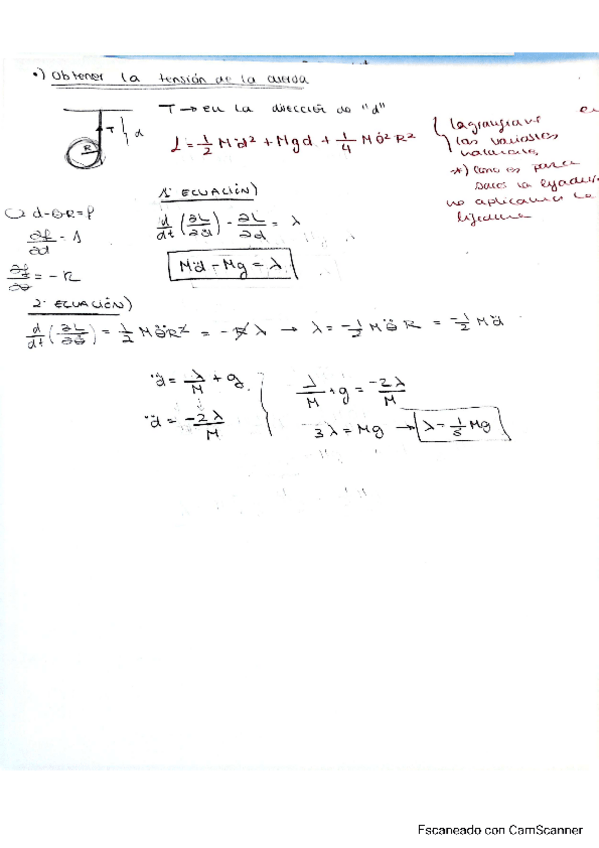 •) Obtener la tensión de la cuerda
T → en la dirección de "d"
T
d
R
L = 1/2 M ḋ² + M g d + 1/4 M θ̇² R²
lagrangiana
las variables
naturales
*) como es para
sacar la ligadura
no aplicamos la
ligadura
1ª ECUACIÓN)
d-θR=f
d/dt (∂L/∂ḋ) - ∂L/∂d = λ
∂f/∂d = 1
M d̈ - M g = λ
∂f/∂θ = - R
2ª ECUACIÓN)
d/dt (∂L/∂θ̇) = 1/2 M θ̈ R² = - R λ → λ = -1/2 M θ̈ R = -1/2 M d̈
d̈ = λ/M + g
λ/M + g = -2λ/M
d̈ = -2λ/M
3λ = Mg → λ = 1/3 Mg
Escaneado con CamScanner